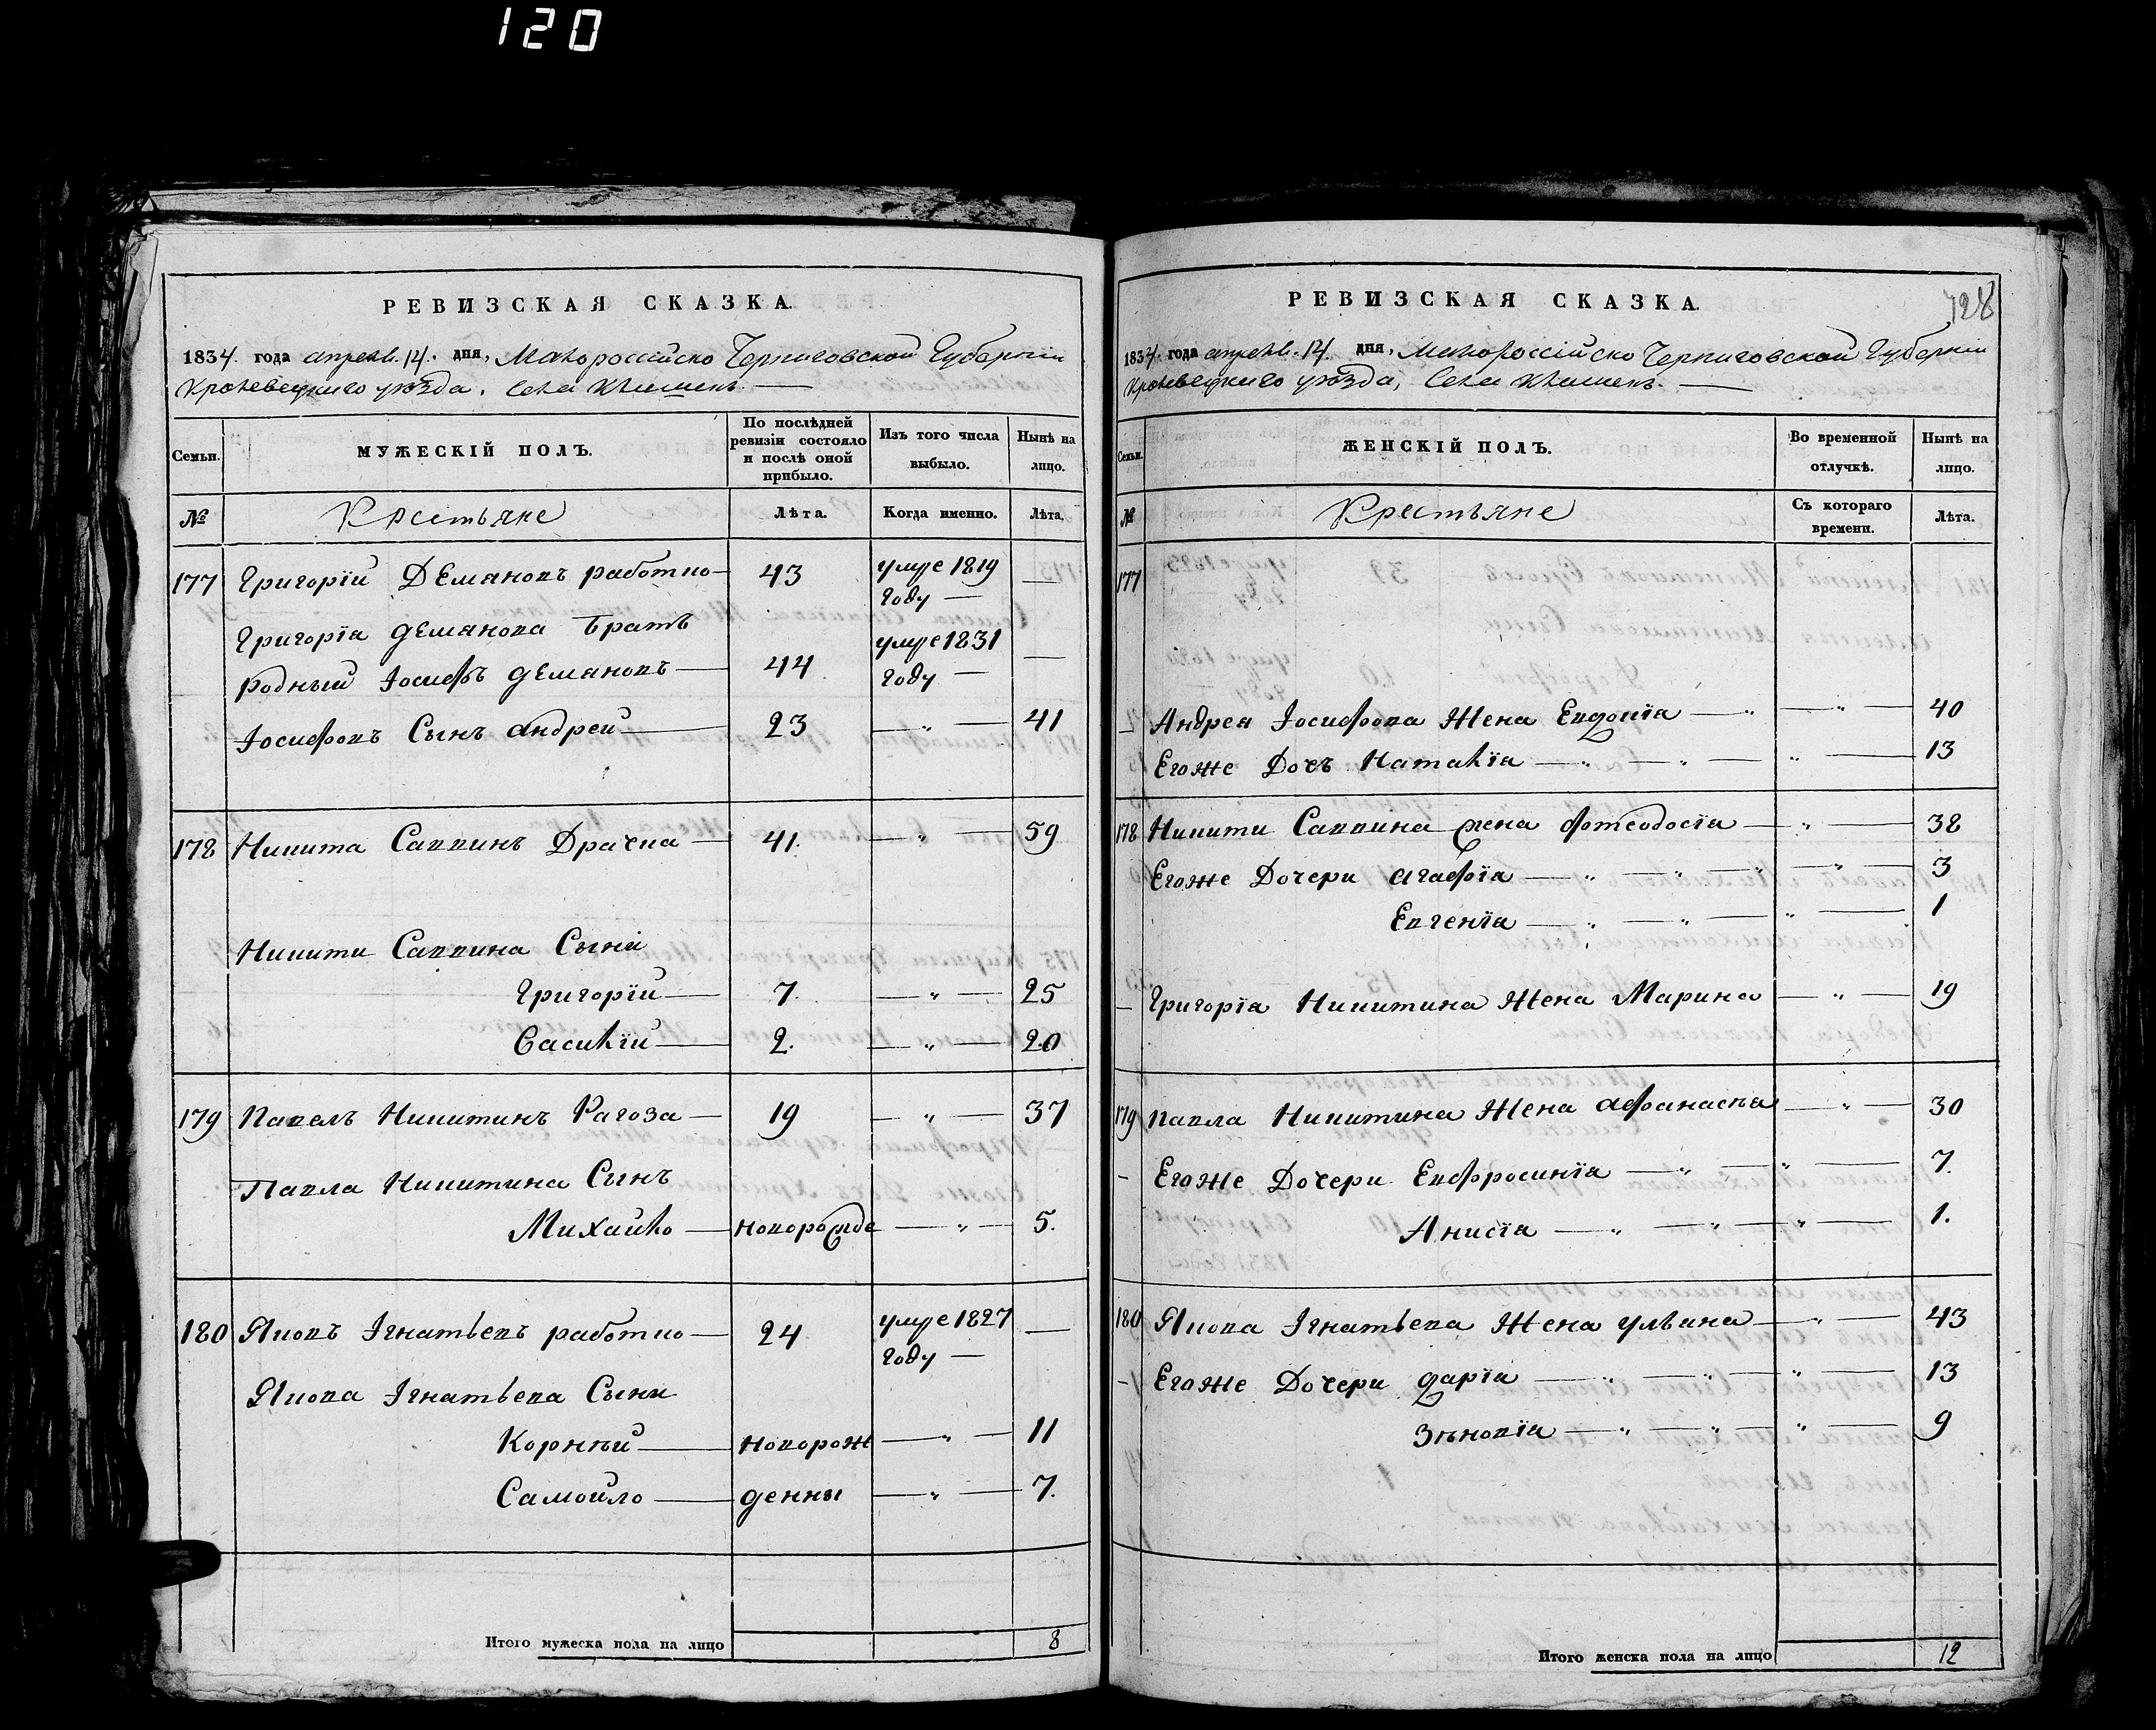 120
РЕВИЗСКАЯ СКАЗКА.
1834. года апреля. 14. дня, Малороссийско Черниговской Губернии
Кролевецкаго уѣзда, Села Клишекъ.
Семьи.
МУЖЕСКІЙ ПОЛЪ.
По послѣдней ревизіи состояло и послѣ оной прибыло.
Изъ того числа выбыло.
Нынѣ на лицо.
№
Крестьяне
Лѣта.
Когда именно.
Лѣта.
177 Григорїй Демяновъ работно— 43 умре 1819 году — —
Григорїя Демянова братъ
родный Іосифъ Демяновъ— 44 умре 1831 году — —
Іосифовъ Сынъ андрей— — " — 23 41
178 Никита Саввинъ Драчка — 41. — " — 59
Никити Саввина Сыны
Григорїй— 7. — " — 25
Василїй— 2. — " — 20
179 Павелъ Никитинъ Рагоза — 19 — " — 37
Павла Никитина Сынъ
Михайло — новорожде — " — 5.
180 Яковъ Ігнатьевъ работно— 24 умре 1827 году — —
Якова Ігнатьева Сыны
Корнѣй— новорож — " — 11
Самойло— денны — " — 7.
Итого мужеска пола на лицо 8
РЕВИЗСКАЯ СКАЗКА.
128
1834. года апреля. 14. дня, Малороссійско Черниговской Губернии
Кролевецкаго уѣзда, Села Клишекъ.
Семьи.
ЖЕНСКІЙ ПОЛЪ.
Во временной отлучкѣ.
Нынѣ на лицо.
№
Крестьяне
Съ котораго времени.
Лѣта.
177
— Андрея Іосифова Жена Евдокїя — " — " — 40
Егоже Дочъ Наталїя — " — " — " — 13
178 Никити Саввина жена Фтеодосїя — " — 38
Егоже Дочери агафїя — " — " — " — " — 3
Евгенїя — " — " — " — 1
— Григорїя Никитина Жена Марина — " — 19
179 Павла Никитина Жена афанасья — " — 30
— Егоже Дочери Евфросинїя — " — " — 7.
Анисїя — " — " — " — 1.
180 Якова Ігнатьева Жена ульяна — " — 43
— Егоже Дочери дарїя — " — " — " — 13
Зѣновїя — " — " — " — 9
Итого женска пола на лицо 12